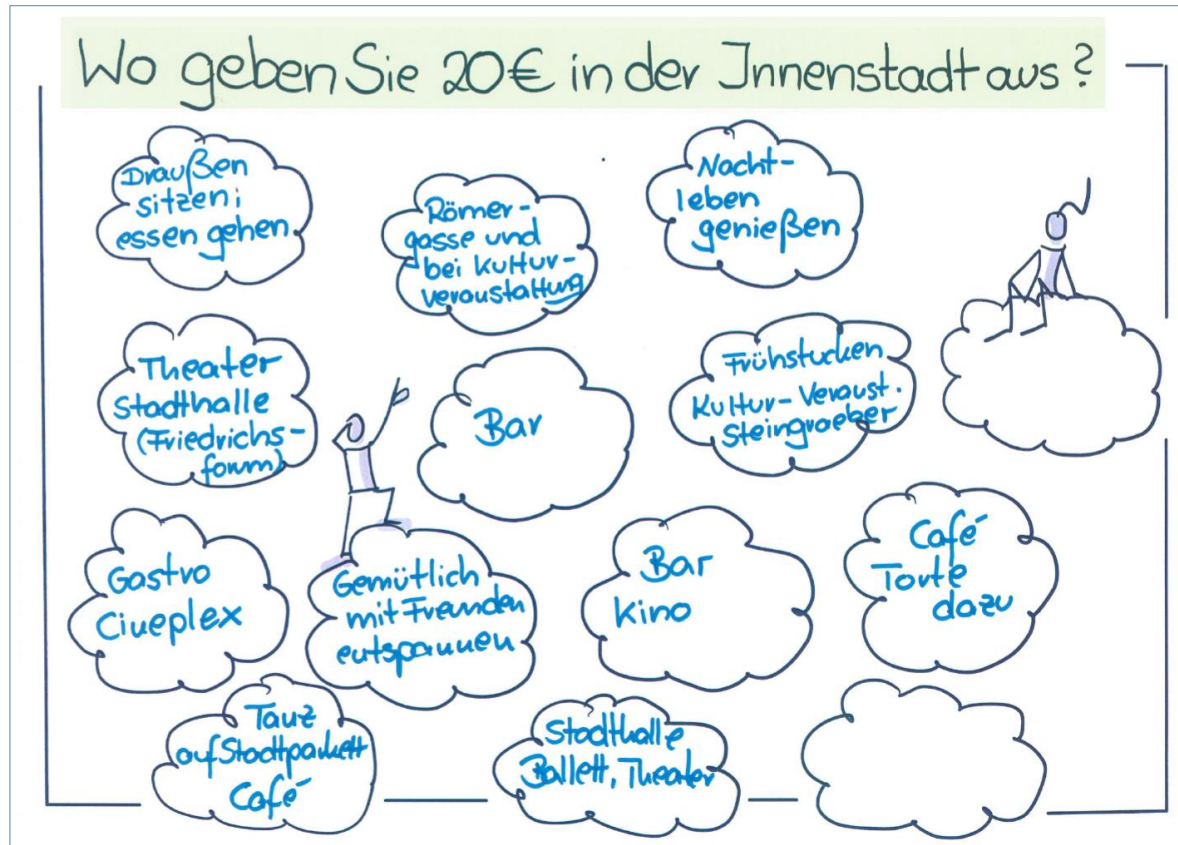 Wo geben Sie 20€ in der Innenstadt aus?
Draußen
sitzen;
essen gehen
Römer-
gasse und
bei Kultur-
veranstaltung
Nacht-
leben
genießen
Theater
Stadthalle
(Friedrichs-
forum)
Bar
Frühstücken
Kultur-Veranst.
Steingraeber
Gastro
Cineplex
Gemütlich
mit Freunden
entspannen
Bar
Kino
Café
Torte
dazu
Tanz
auf Stadtparkett
Café
Stadthalle
Ballett, Theater